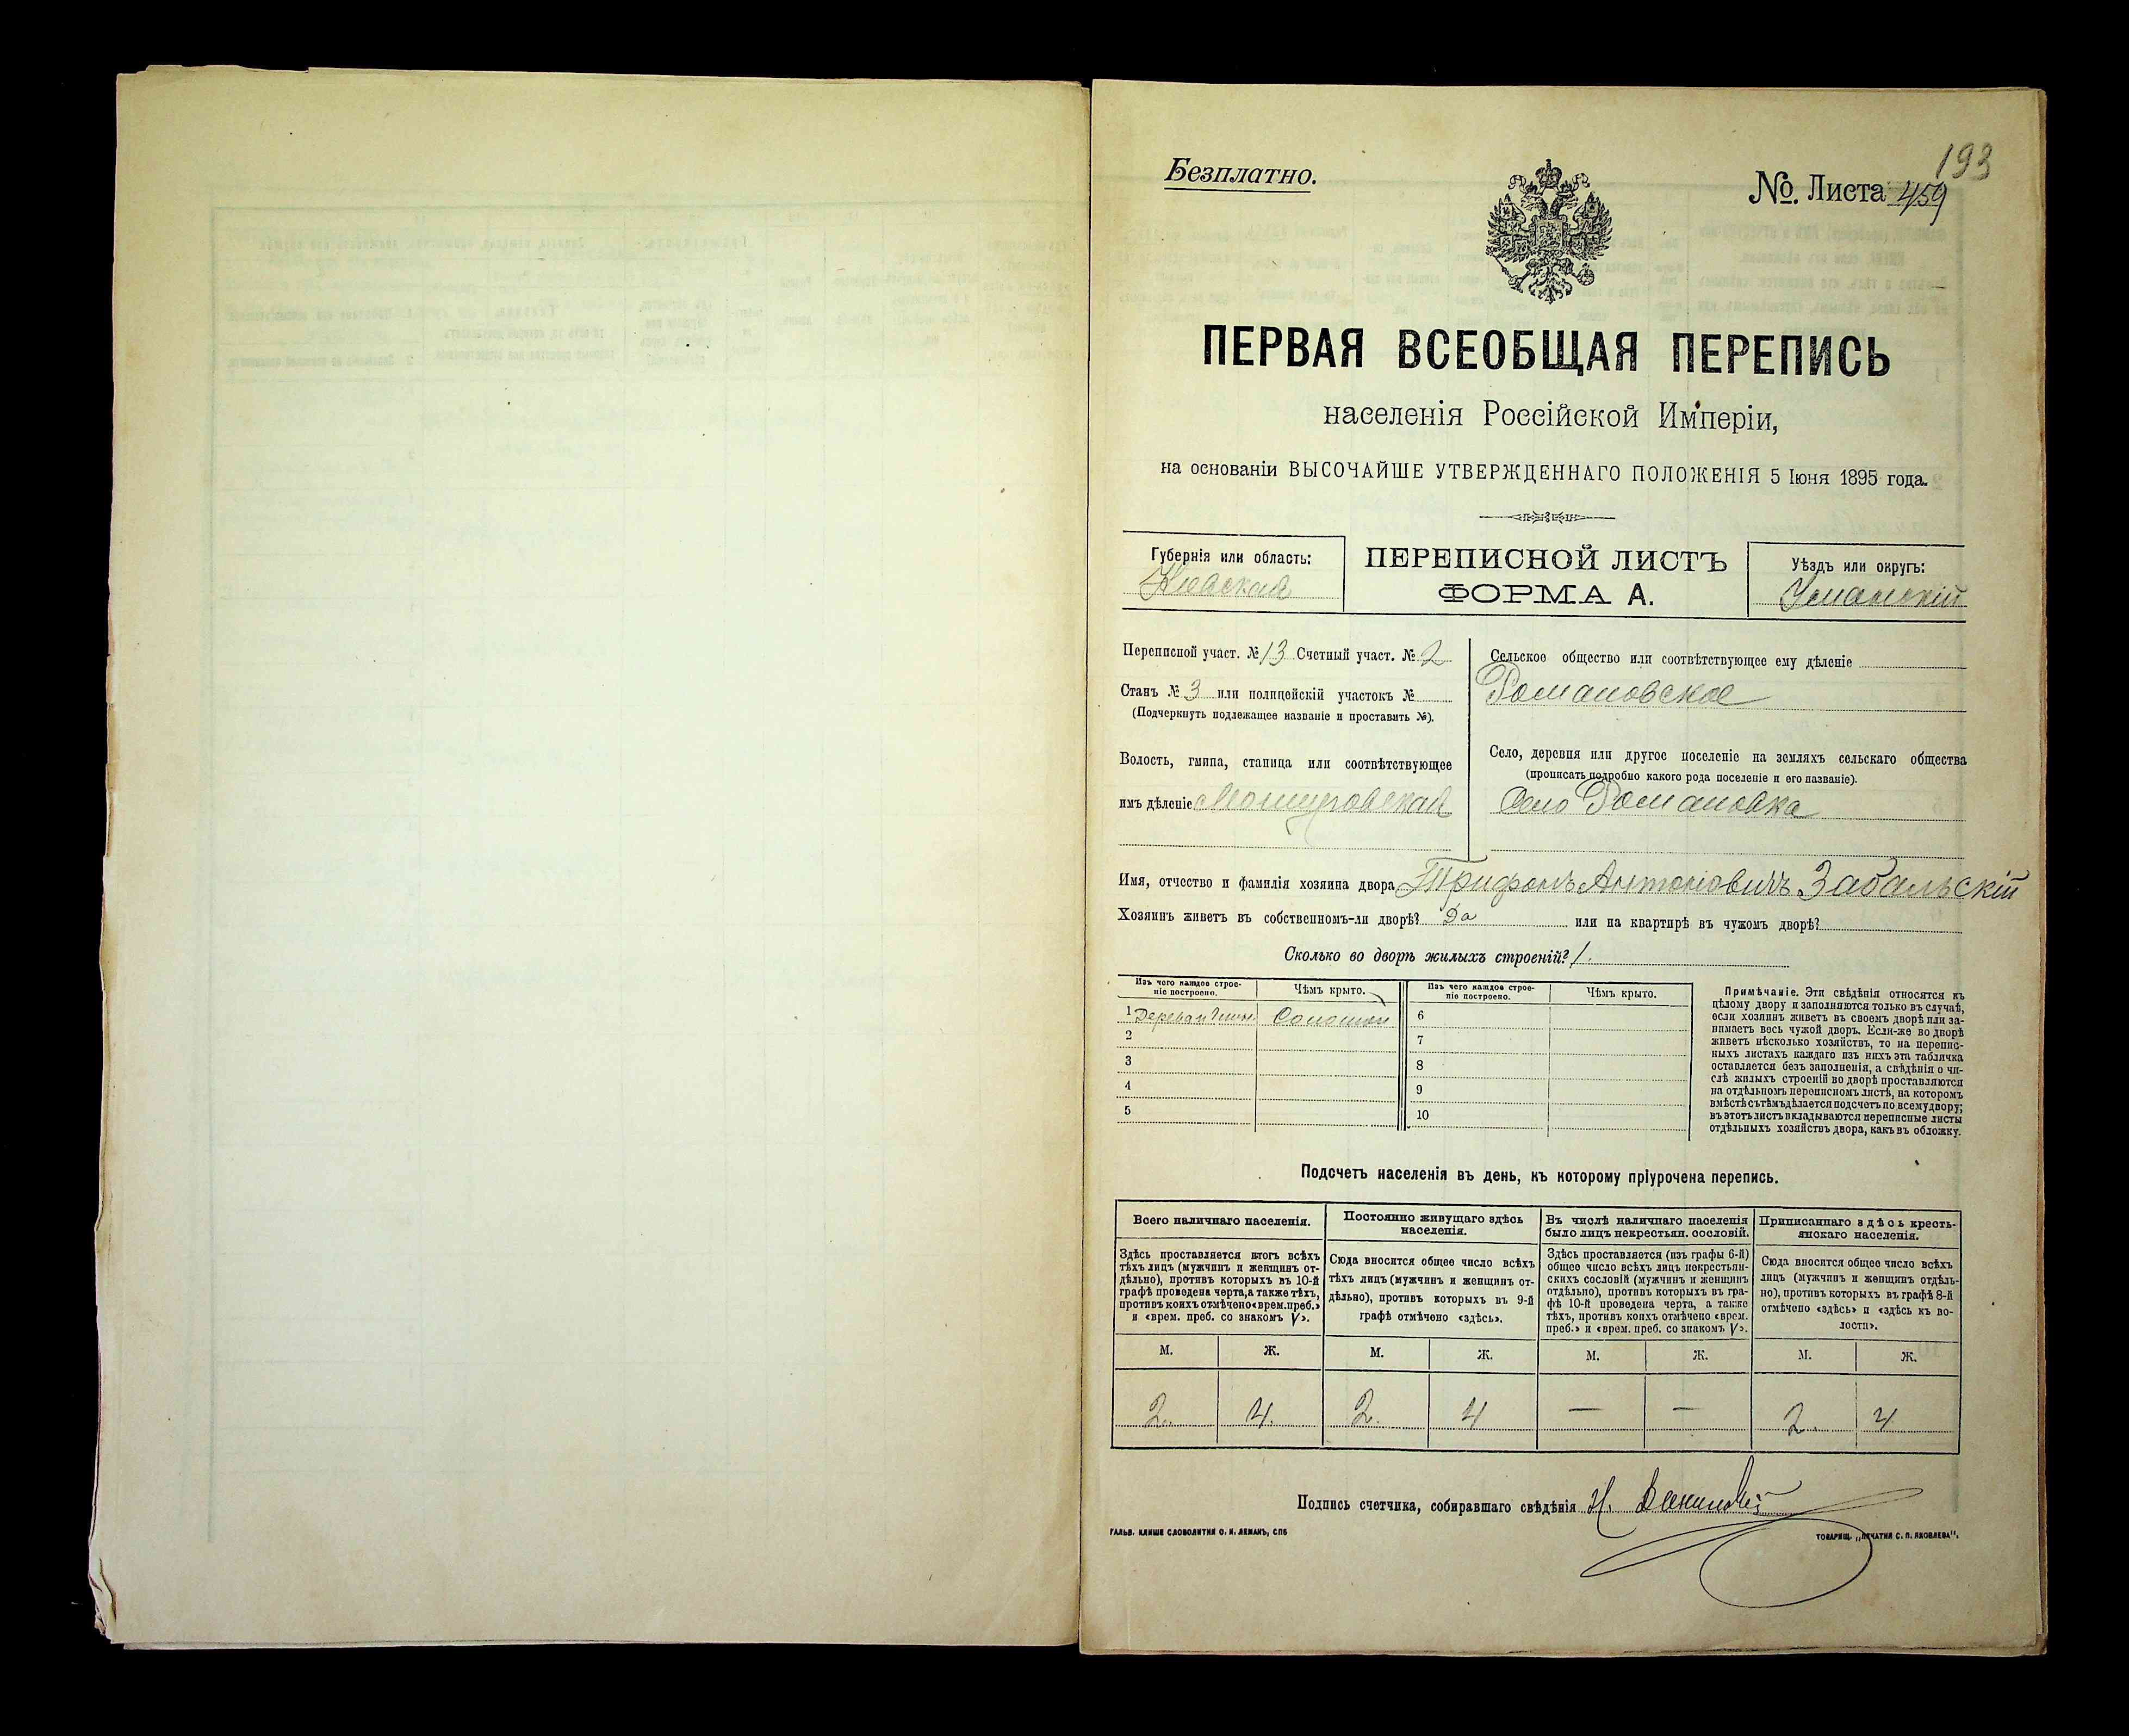 193
Безплатно.
№. Листа 459
ПЕРВАЯ ВСЕОБЩАЯ ПЕРЕПИСЬ
населенія Россійской Имперіи,
на основаніи ВЫСОЧАЙШЕ УТВЕРЖДЕННАГО ПОЛОЖЕНІЯ 5 Іюня 1895 года.
Губернія или область:
Кіевская
ПЕРЕПИСНОЙ ЛИСТЪ
ФОРМА А.
Уѣздъ или округъ:
Уманскій
Переписной участ. № 13 Счетный участ. № 2
Станъ № 3 или полицейскій участокъ №
(Подчеркнуть подлежащее названіе и проставить №).
Волость, гмина, станица или соотвѣтствующее
имъ дѣленіе
Сельское общество или соотвѣтствующее ему дѣленіе
Романовское
Село, деревня или другое поселеніе на земляхъ сельскаго общества
(прописать подробно какого рода поселеніе и его названіе).
Село Романовка
Имя, отчество и фамилія хозяина двора Трифонъ Антоновичъ Забальскій
Хозяинъ живетъ въ собственномъ-ли дворѣ? Да или на квартирѣ въ чужомъ дворѣ?
Сколько во дворѣ жилыхъ строеній? 1.
Изъ чего каждое строе-
ніе построено.
Чѣмъ крыто.
Изъ чего каждое строе-
ніе построено.
Чѣмъ крыто.
1 Дерева и глины Соломой
2
3
4
5
6
7
8
9
10
Примѣчаніе. Эти свѣдѣнія относятся къ
цѣлому двору и заполняются только въ случаѣ,
если хозяинъ живетъ въ своемъ дворѣ или за-
нимаетъ весь чужой дворъ. Если-же во дворѣ
живетъ нѣсколько хозяйствъ, то на перепис-
ныхъ листахъ каждаго изъ нихъ эта табличка
оставляется безъ заполненія, а свѣдѣнія о чи-
слѣ жилыхъ строеній во дворѣ проставляются
на отдѣльномъ переписномъ листѣ, на которомъ
вмѣстѣ съ тѣмъ дѣлается подсчетъ по всему двору;
въ этотъ листъ вкладываются переписные листы
отдѣльныхъ хозяйствъ двора, какъ въ обложку.
Подсчетъ населенія въ день, къ которому пріурочена перепись.
Всего наличнаго населенія.
Здѣсь проставляется итогъ всѣхъ
тѣхъ лицъ (мужчинъ и женщинъ от-
дѣльно), противъ которыхъ въ 10-й
графѣ проведена черта, а также тѣхъ,
противъ коихъ отмѣчено «врем. преб.»
и «врем. преб. со знакомъ V».
Постоянно живущаго здѣсь
населенія.
Сюда вносится общее число всѣхъ
тѣхъ лицъ (мужчинъ и женщинъ от-
дѣльно), противъ которыхъ въ 9-й
графѣ отмѣчено «здѣсь».
Въ числѣ наличнаго населенія
было лицъ некрестьян. сословій.
Здѣсь проставляется (изъ графы 6-й)
общее число всѣхъ лицъ некрестьян-
скихъ сословій (мужчинъ и женщинъ
отдѣльно), противъ которыхъ въ гра-
фѣ 10-й проведена черта, а также
тѣхъ, противъ коихъ отмѣчено «врем.
преб.» и «врем. преб. со знакомъ V».
Приписаннаго здѣсь кресть-
янскаго населенія.
Сюда вносится общее число всѣхъ
лицъ (мужчинъ и женщинъ отдѣль-
но), противъ которыхъ въ графѣ 8-й
отмѣчено «здѣсь» и «здѣсь къ во-
лости».
М. Ж. М. Ж. М. Ж. М. Ж.
2. 4. 2. 4 — — 2. 4
Подпись счетчика, собиравшаго свѣдѣнія
ГАЛЬВ. КЛИШЕ СЛОВОЛИТНИ О. И. ЛЕМАНЪ, СПБ
ТОВАРИЩ. „ПЕЧАТНЯ С. П. ЯКОВЛЕВА“.